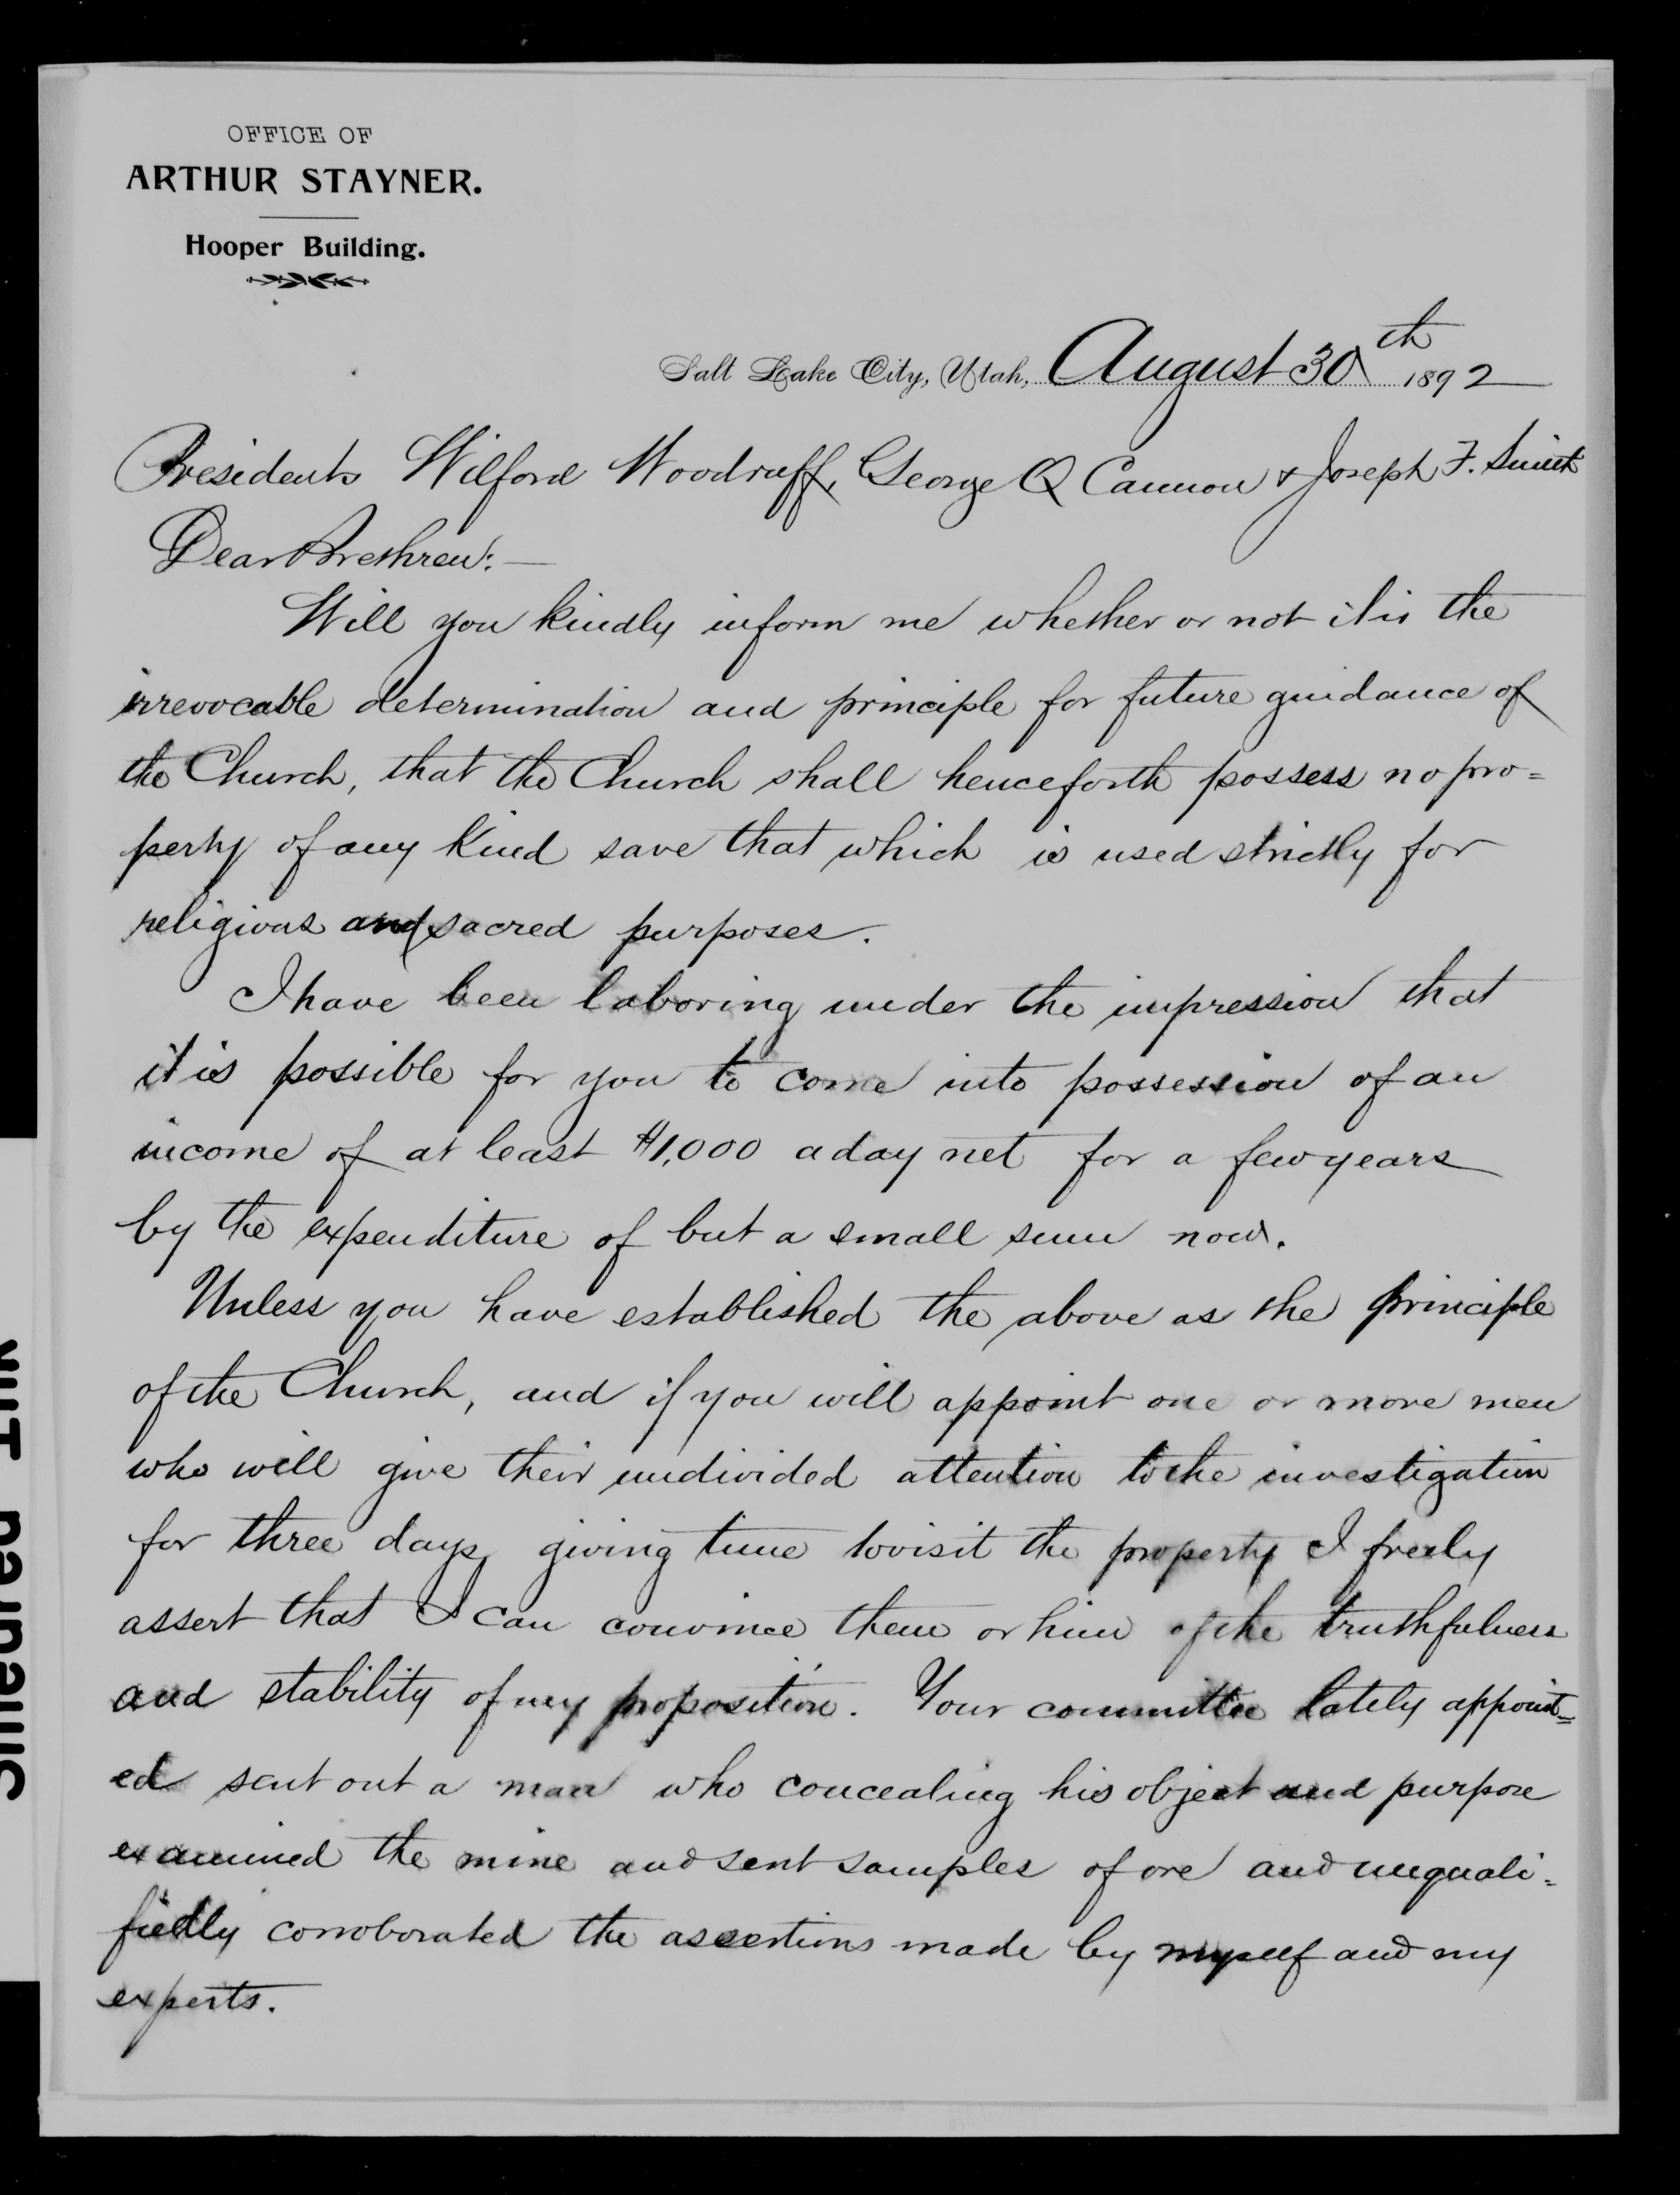 OFFICE OF
ARTHUR STAYNER.
Hooper Building.
Salt Lake City, Utah, August 30th 1892
Presidents Wilford Woodruff, George Q Cannon & Joseph F. Smith
Dear Brethren:—
Will you kindly inform me whether or not it is the
irrevocable determination and principle for future guidance of
the Church, that the Church shall henceforth possess no pro=
perty of any kind save that which is used strictly for
religious and sacred purposes.
I have been laboring under the impression that
it is possible for you to come into possession of an
income of at least $1,000 a day net for a few years
by the expenditure of but a small sum now.
Unless you have established the above as the principle
of the Church, and if you will appoint one or more men
who will give their undivided attention to the investigation
for three days, giving time to visit the property I freely
assert that I can convince them or him of the truthfulness
and stability of my proposition. Your committee lately appoint=
ed sent out a man who concealing his object and purpose
examined the mine and sent samples of ore and unquali=
fiedly corroborated the assertions made by myself and my
experts.